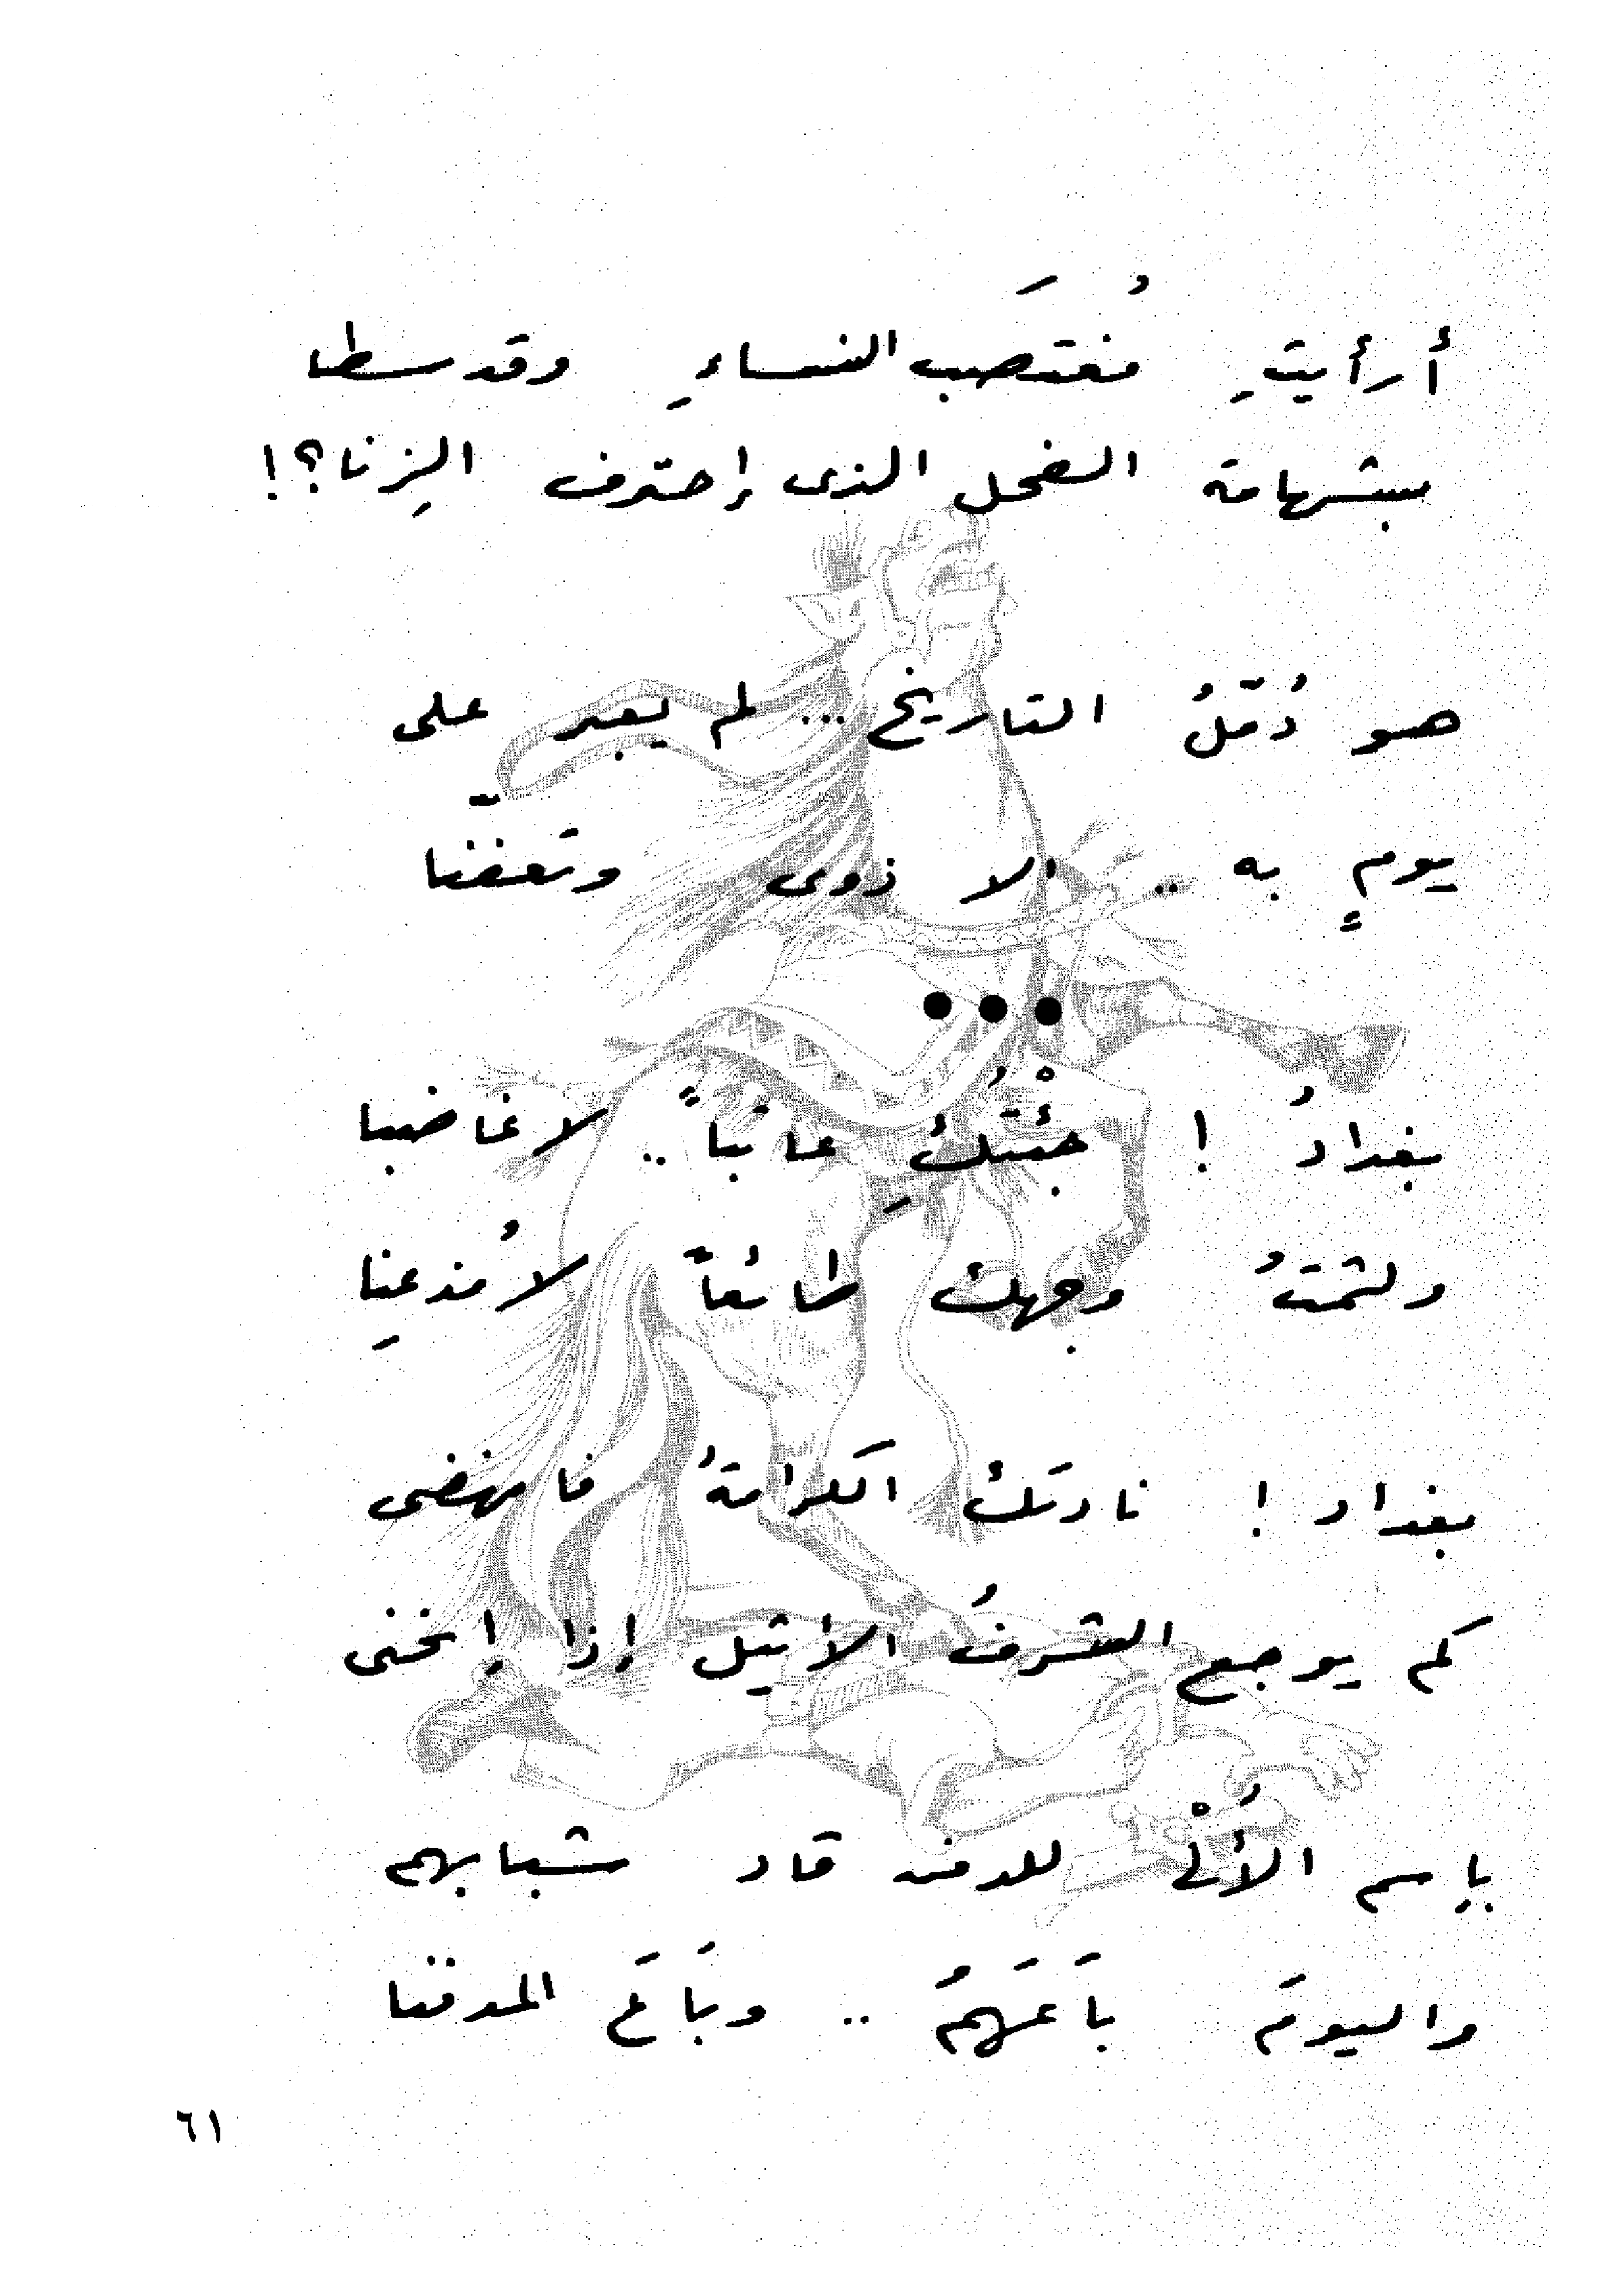 أرأيتِ مُغتصَب النساءِ وقد سطا
بشهامة الفحل الذى إحترف الزِنا؟!
هو دُمّلُ التاريخ ... لم يعبر على
يومٍ به .. الا ذوى وتعفّنا
...
بغدادُ ! جئْتُكِ عاتباً .. لا غاضبا
ولثمتُ وجهك طائعاً لا مُذعِنا
بغداد ! نادتك الكرامةُ فانهضى
كم يوجع الشرفُ الاثيل إذا إنحنى
بإسم الأُلْى للدفن قاد شبابهم
واليومَ بَاعَهمُ .. وبَاعَ المدفنا
٦١